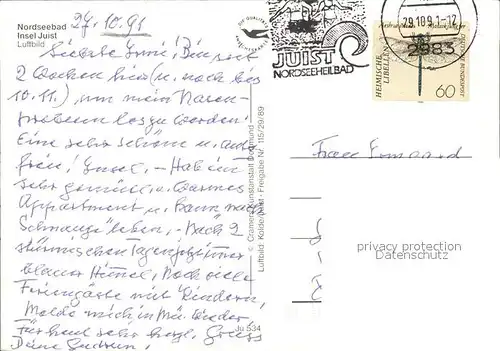 Nordseebad
Insel Juist
Luftbild
27.10.91
Bin seit
2 Wochen hier (u. noch bis
10.11.) um mein Nasen-
loszuwerden!
Eine sehr schöne u. auto
freie Insel. - Hab ein
sehr gemütl. u. warmes
Appartment u. kann nach
leben. - Nach 2
stürmischen Tagen jetzt immer
blauer Himmel, noch viele
Feriengäste mit Kindern,
Melde mich in Mü. wieder
Für heut sehr herzl. Grüss
Deine Gudrun!
© Cramers Kunstanstalt Dortmund
Luftbild: Kolde, Juist · Freigabe Nr. 115/29/89
Ju 534
JUIST
NORDSEEHEILBAD
29.10.91-12
2983
HEIMISCHE
LIBELLEN
DEUTSCHE BUNDESPOST
60
Frau
privacy protection
Datenschutz